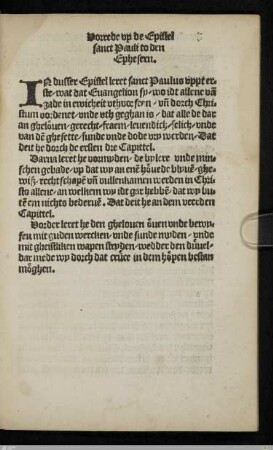 Vorrede vp de Epistel
sanct Pauli to den
Ephesern.
IN dusser Epistel leret sanct Paulus vppt er-
ste, wat dat Euangelion sy, wo idt allene vā
gade in ewicheit vthuor seyn, vn̄ dorch Chri-
stum vordenet, vnde vth geghan is, dat alle de dar
an ghelöuen, gerecht, fram, leuendich, selich, vnde
van dē ghesette, sunde vnde dode vry werden, Dat
deit he dorch de ersten dre Capittel.
Darna leret he vormyden, de bylere vnde min-
schen gebade, vp dat wy an enē höuede blyuē, ghe-
wiß, rechtschapē vn̄ vullenkamen werden in Chri-
sto allene, an welkem wy idt gar hebbē, dat wy bu-
tē em nichts bederuē, Dat deit he an dem veerden
Capittel.
Vorder leret he den ghelouen öuen vnde bewy-
sen mit guden wercken, vnde sunde myden, vnde
mit gheistliken wapen stryden, wedder den düuel,
dar mede wy dorch dat crüce in dem höpen bestan
möghen.